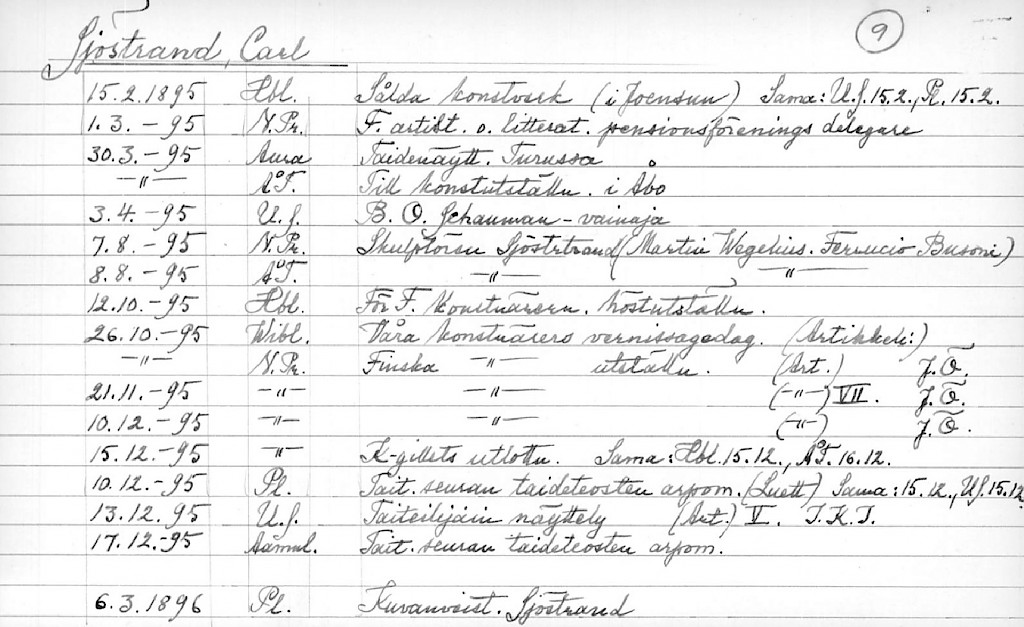 9
Sjöstrand, Carl
15.2.1895 Hbl. Sålda konstverk (i Joensuu) Sama: U.S. 15.2., Pl. 15.2.
1.3.-95 N.Pr. F. artist. o. litterat. pensionsförenings delegare
30.3.-95 Aura Taidenäytt. Turussa
-"- Å.T. Till konstutställn. i Åbo
3.4.-95 U.S. B.O. Schauman-vainaja
7.8.-95 N.Pr. Skulptören Sjöstrtrand (Martin Wegelius. Ferrucio Busoni)
8.8.-95 Å.T. -"- -"-
12.10.-95 Hbl. För F. konstnärsen. höstutställn.
26.10.-95 Wibl. Våra konstnärers vernissagedag. (Artikkeli:)
-"- N.Pr. Finska -"- utställn. (Art.) J.Ö.
21.11.-95 -"- -"- (-"-) VII. J.Ö.
10.12.-95 -"- -"- (-"-) J.Ö.
15.12.-95 -"- K-gillets utlottn. Sama: Hbl. 15.12., Å.T. 16.12.
10.12.-95 Pl. Tait.seuran taideteosten arpom. (Luett) Sama: 15.12., U.S. 15.12.
13.12.95 U.S. Taiteilijain näyttely (Art.) V. J.K.I.
17.12.-95 Aamul. Tait.seuran taideteosten arpom.
6.3.1896 Pl. Kuvanveist. Sjöstrand